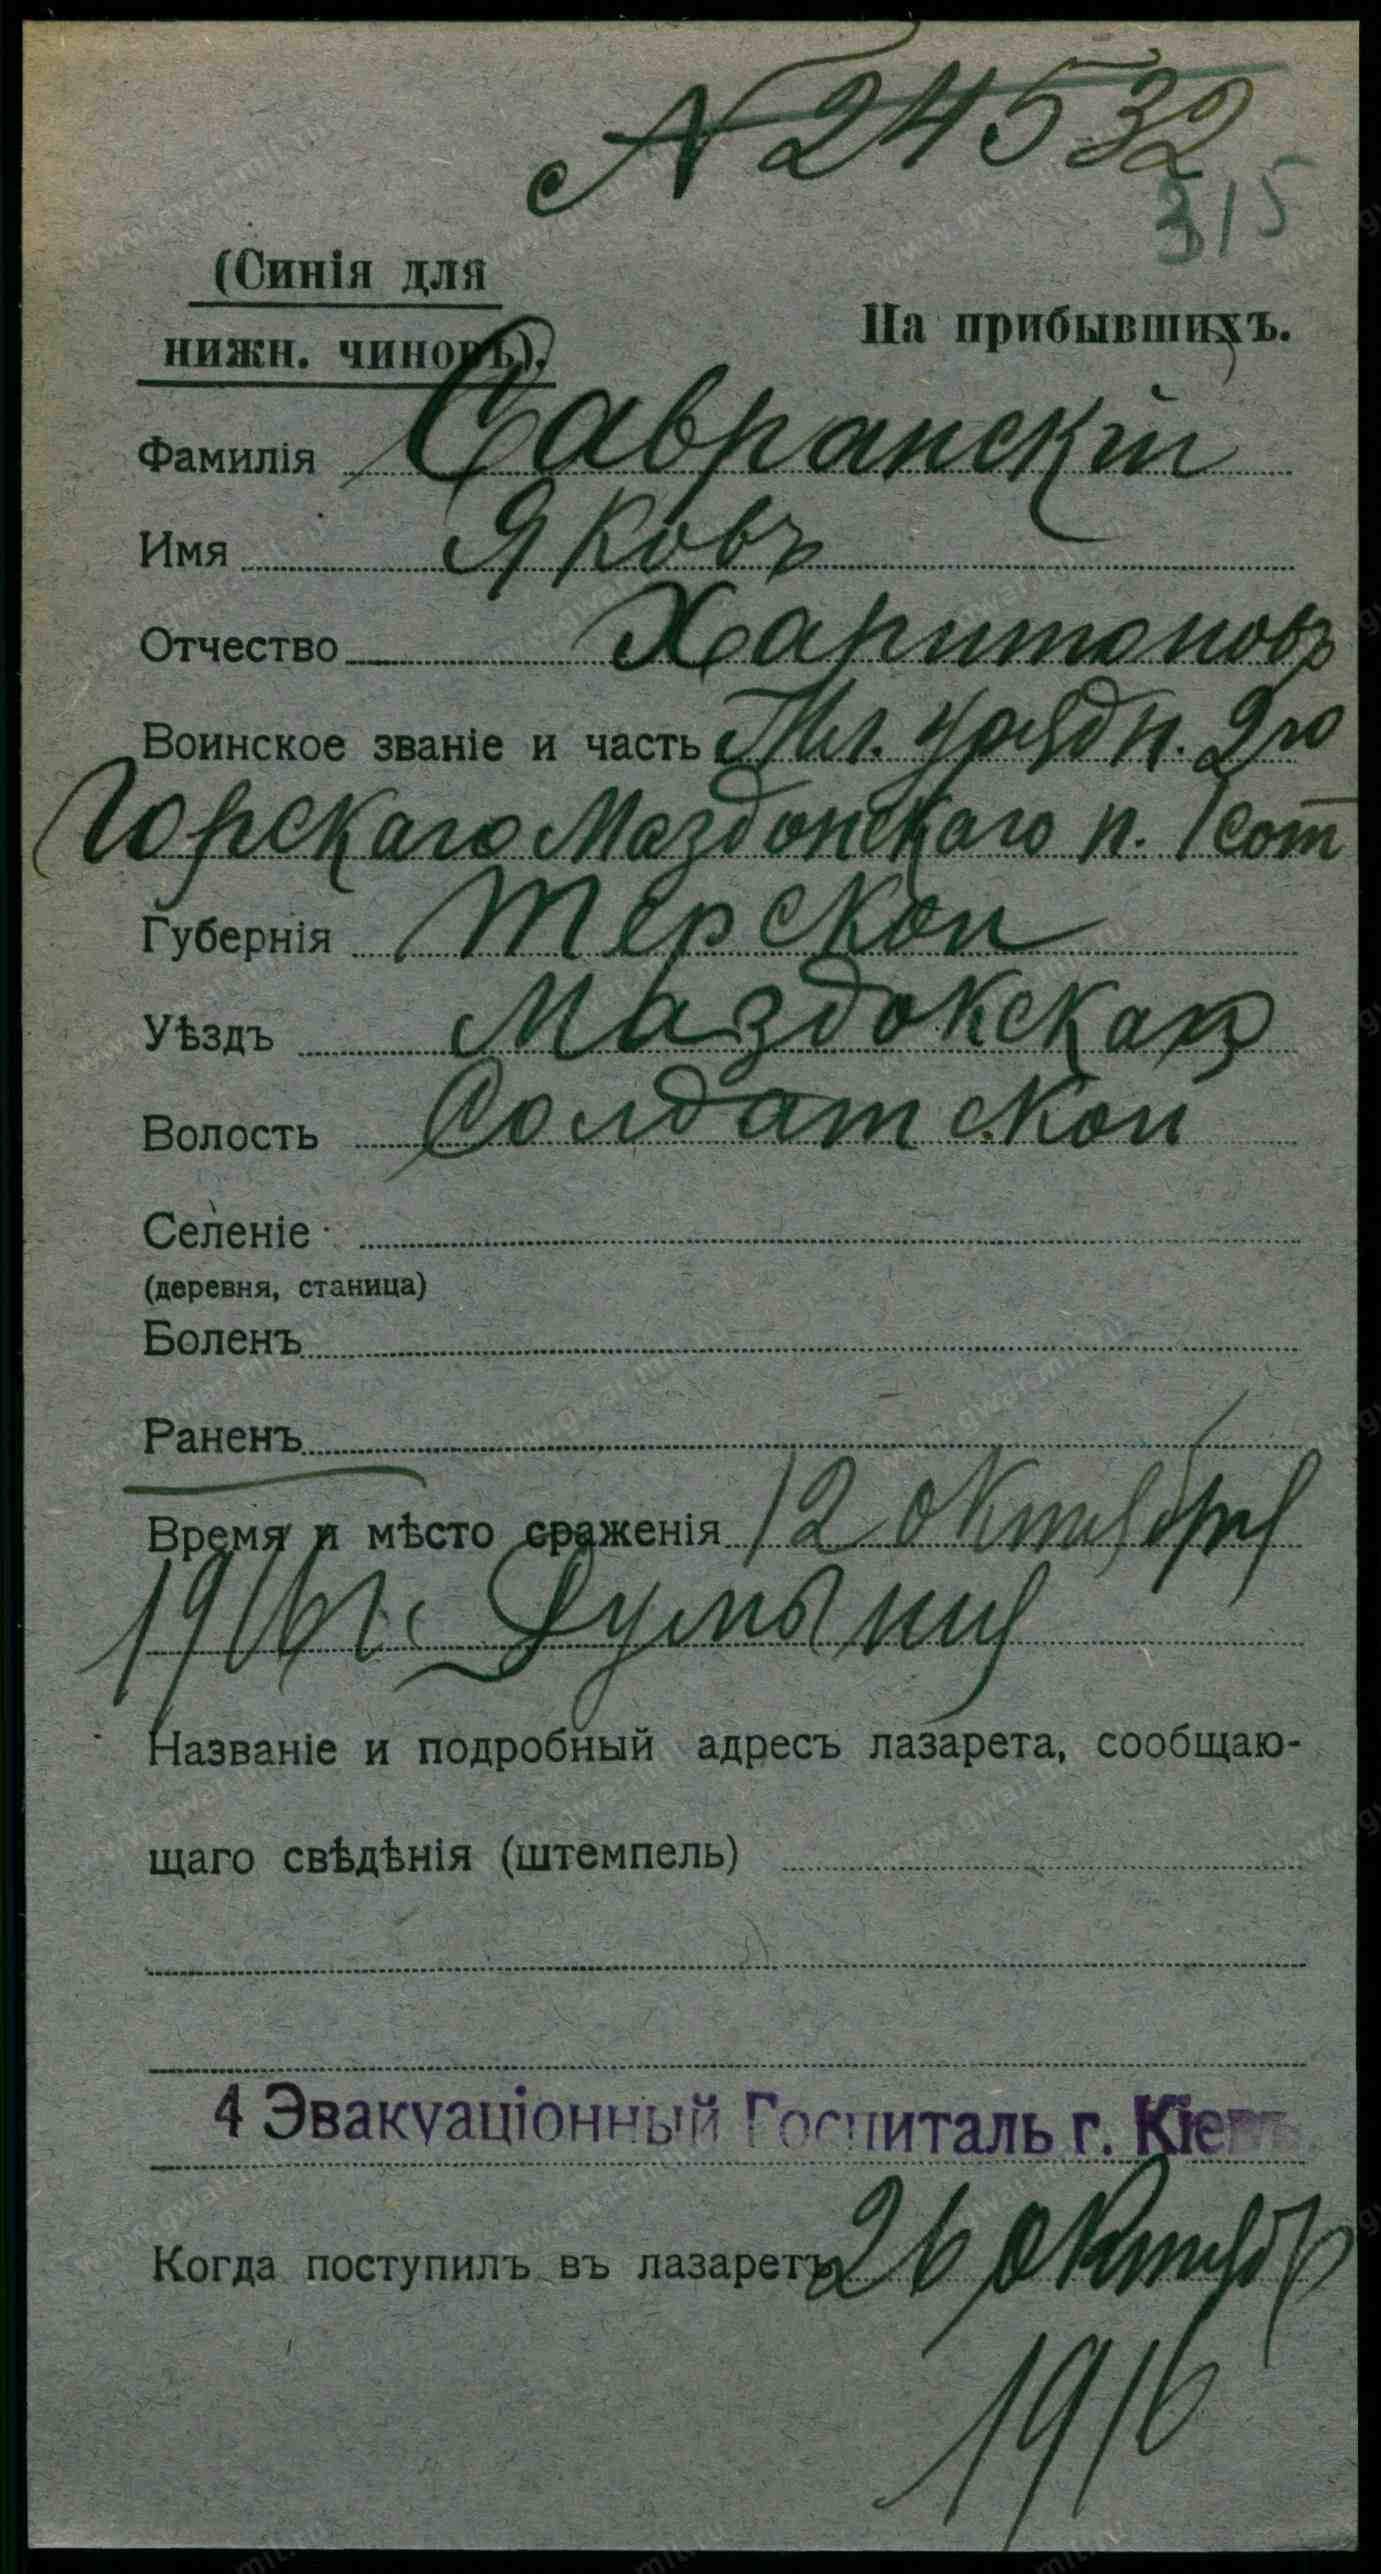 № 24532
315
(Синія для
нижн. чиновъ).
На прибывшихъ.
Фамилія Савранскій
Имя Яковъ
Отчество Харитоновъ
Воинское званіе и часть Мл. урядн. 2го
Горскаго Маздонскаго п. 1 сот
Губернія Терской
Уѣздъ Маздокская
Волость Солдатской
Селеніе
(деревня, станица)
Боленъ
Раненъ
Время и мѣсто сраженія 12 октября
1916 г. Румынія
Названіе и подробный адресъ лазарета, сообщаю-
щаго свѣдѣнія (штемпель)
4 Эвакуаціонный Госпиталь г. Кіевъ.
Когда поступилъ въ лазаретъ 26 октябр
1916